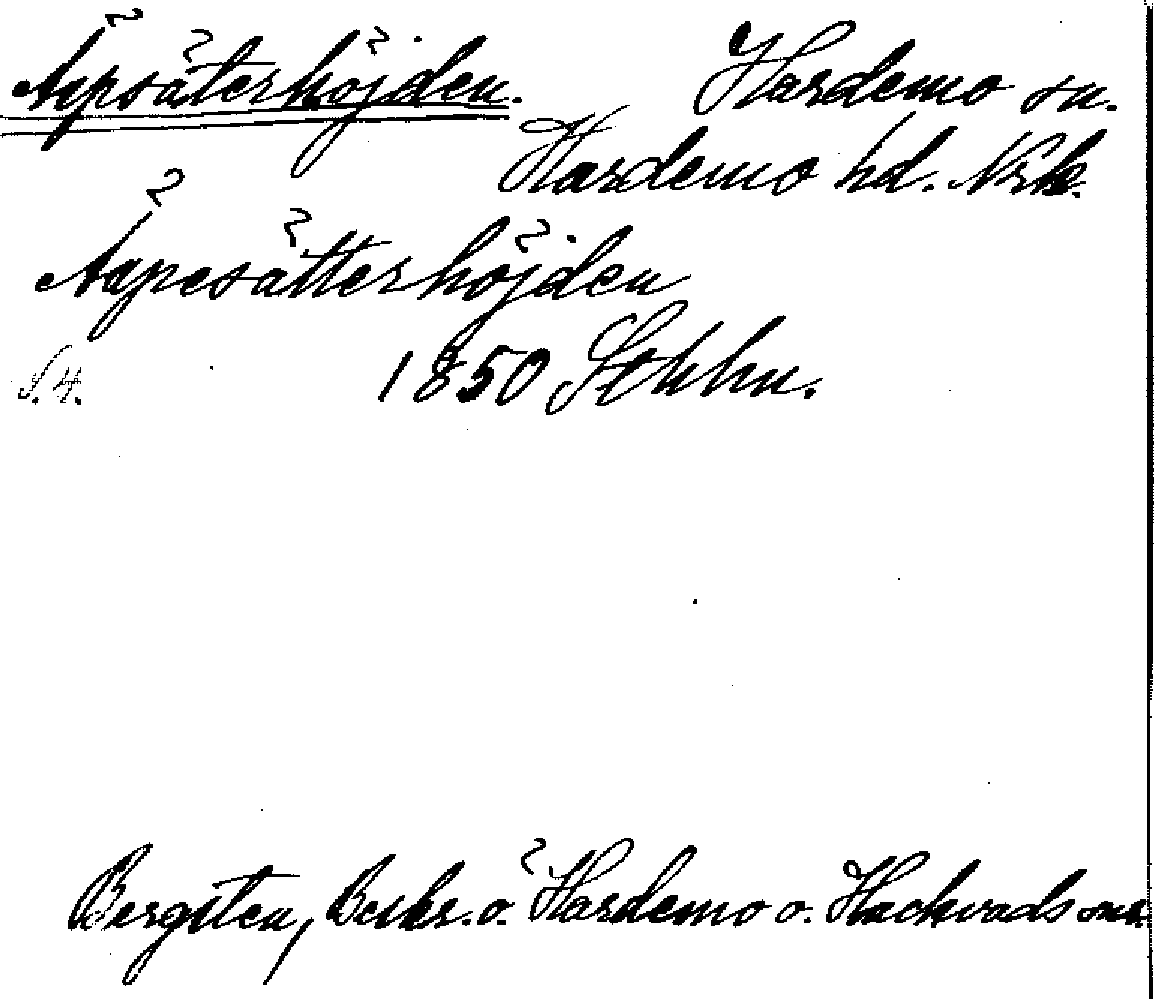 Äspsäterhöjden. Hardemo sn.
Hardemo hd. Nrk.
Äspesätterhöjden
S. 4. 1850 Stkhn.
Bergsten, Beskr. ö. Hardemo o. Hackvads snr.